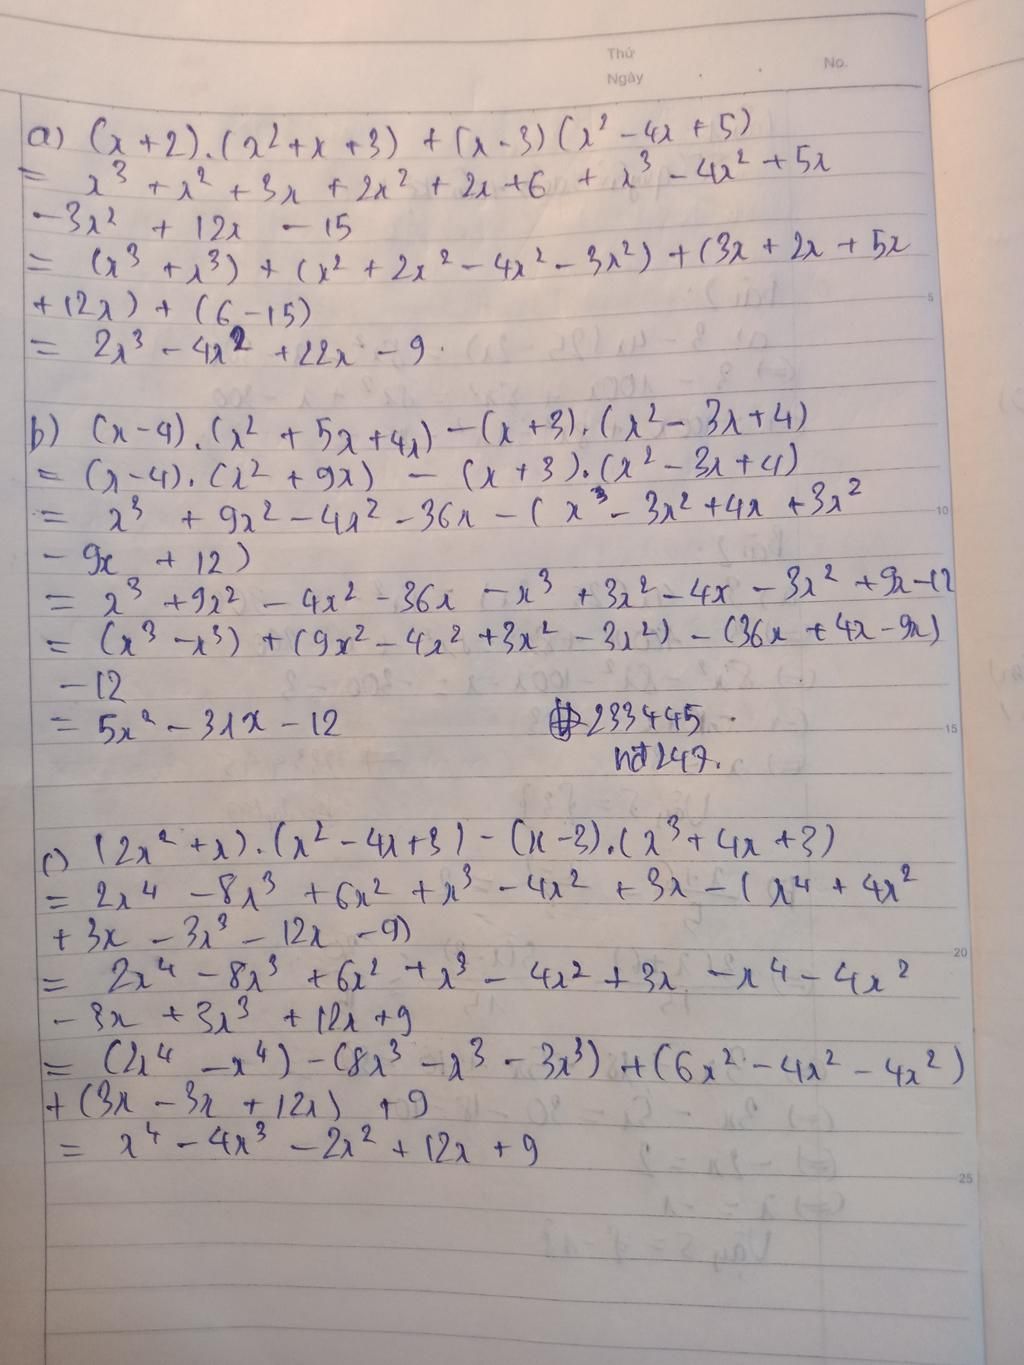 Thứ
Ngày
No.
a) (x+2).(x²+x+3) + (x-3)(x²-4x+5)
= x³ + x² + 3x + 2x² + 2x + 6 + x³ - 4x² + 5x
- 3x² + 12x - 15
= (x³ + x³) + (x² + 2x² - 4x² - 3x²) + (3x + 2x + 5x
+ 12x) + (6 - 15)
= 2x³ - 4x² + 22x - 9.
5
b) (x-4).(x² + 5x + 4x) - (x+3).(x² - 3x + 4)
= (x-4).(x² + 9x) - (x+3).(x² - 3x + 4)
= x³ + 9x² - 4x² - 36x - (x³ - 3x² + 4x + 3x²
10
- 9x + 12)
= x³ + 9x² - 4x² - 36x - x³ + 3x² - 4x - 3x² + 9x - 12
= (x³ - x³) + (9x² - 4x² + 3x² - 3x²) - (36x + 4x - 9x)
- 12
= 5x² - 31x - 12
233445
nd247.
15
c) (2x² + x).(x² - 4x + 3) - (x-3).(x³ + 4x + 3)
= 2x⁴ - 8x³ + 6x² + x³ - 4x² + 3x - (x⁴ + 4x²
+ 3x - 3x³ - 12x - 9)
20
= 2x⁴ - 8x³ + 6x² + x³ - 4x² + 3x - x⁴ - 4x²
- 3x + 3x³ + 12x + 9
= (2x⁴ - x⁴) - (8x³ - x³ - 3x³) + (6x² - 4x² - 4x²)
+ (3x - 3x + 12x) + 9
= x⁴ - 4x³ - 2x² + 12x + 9
25